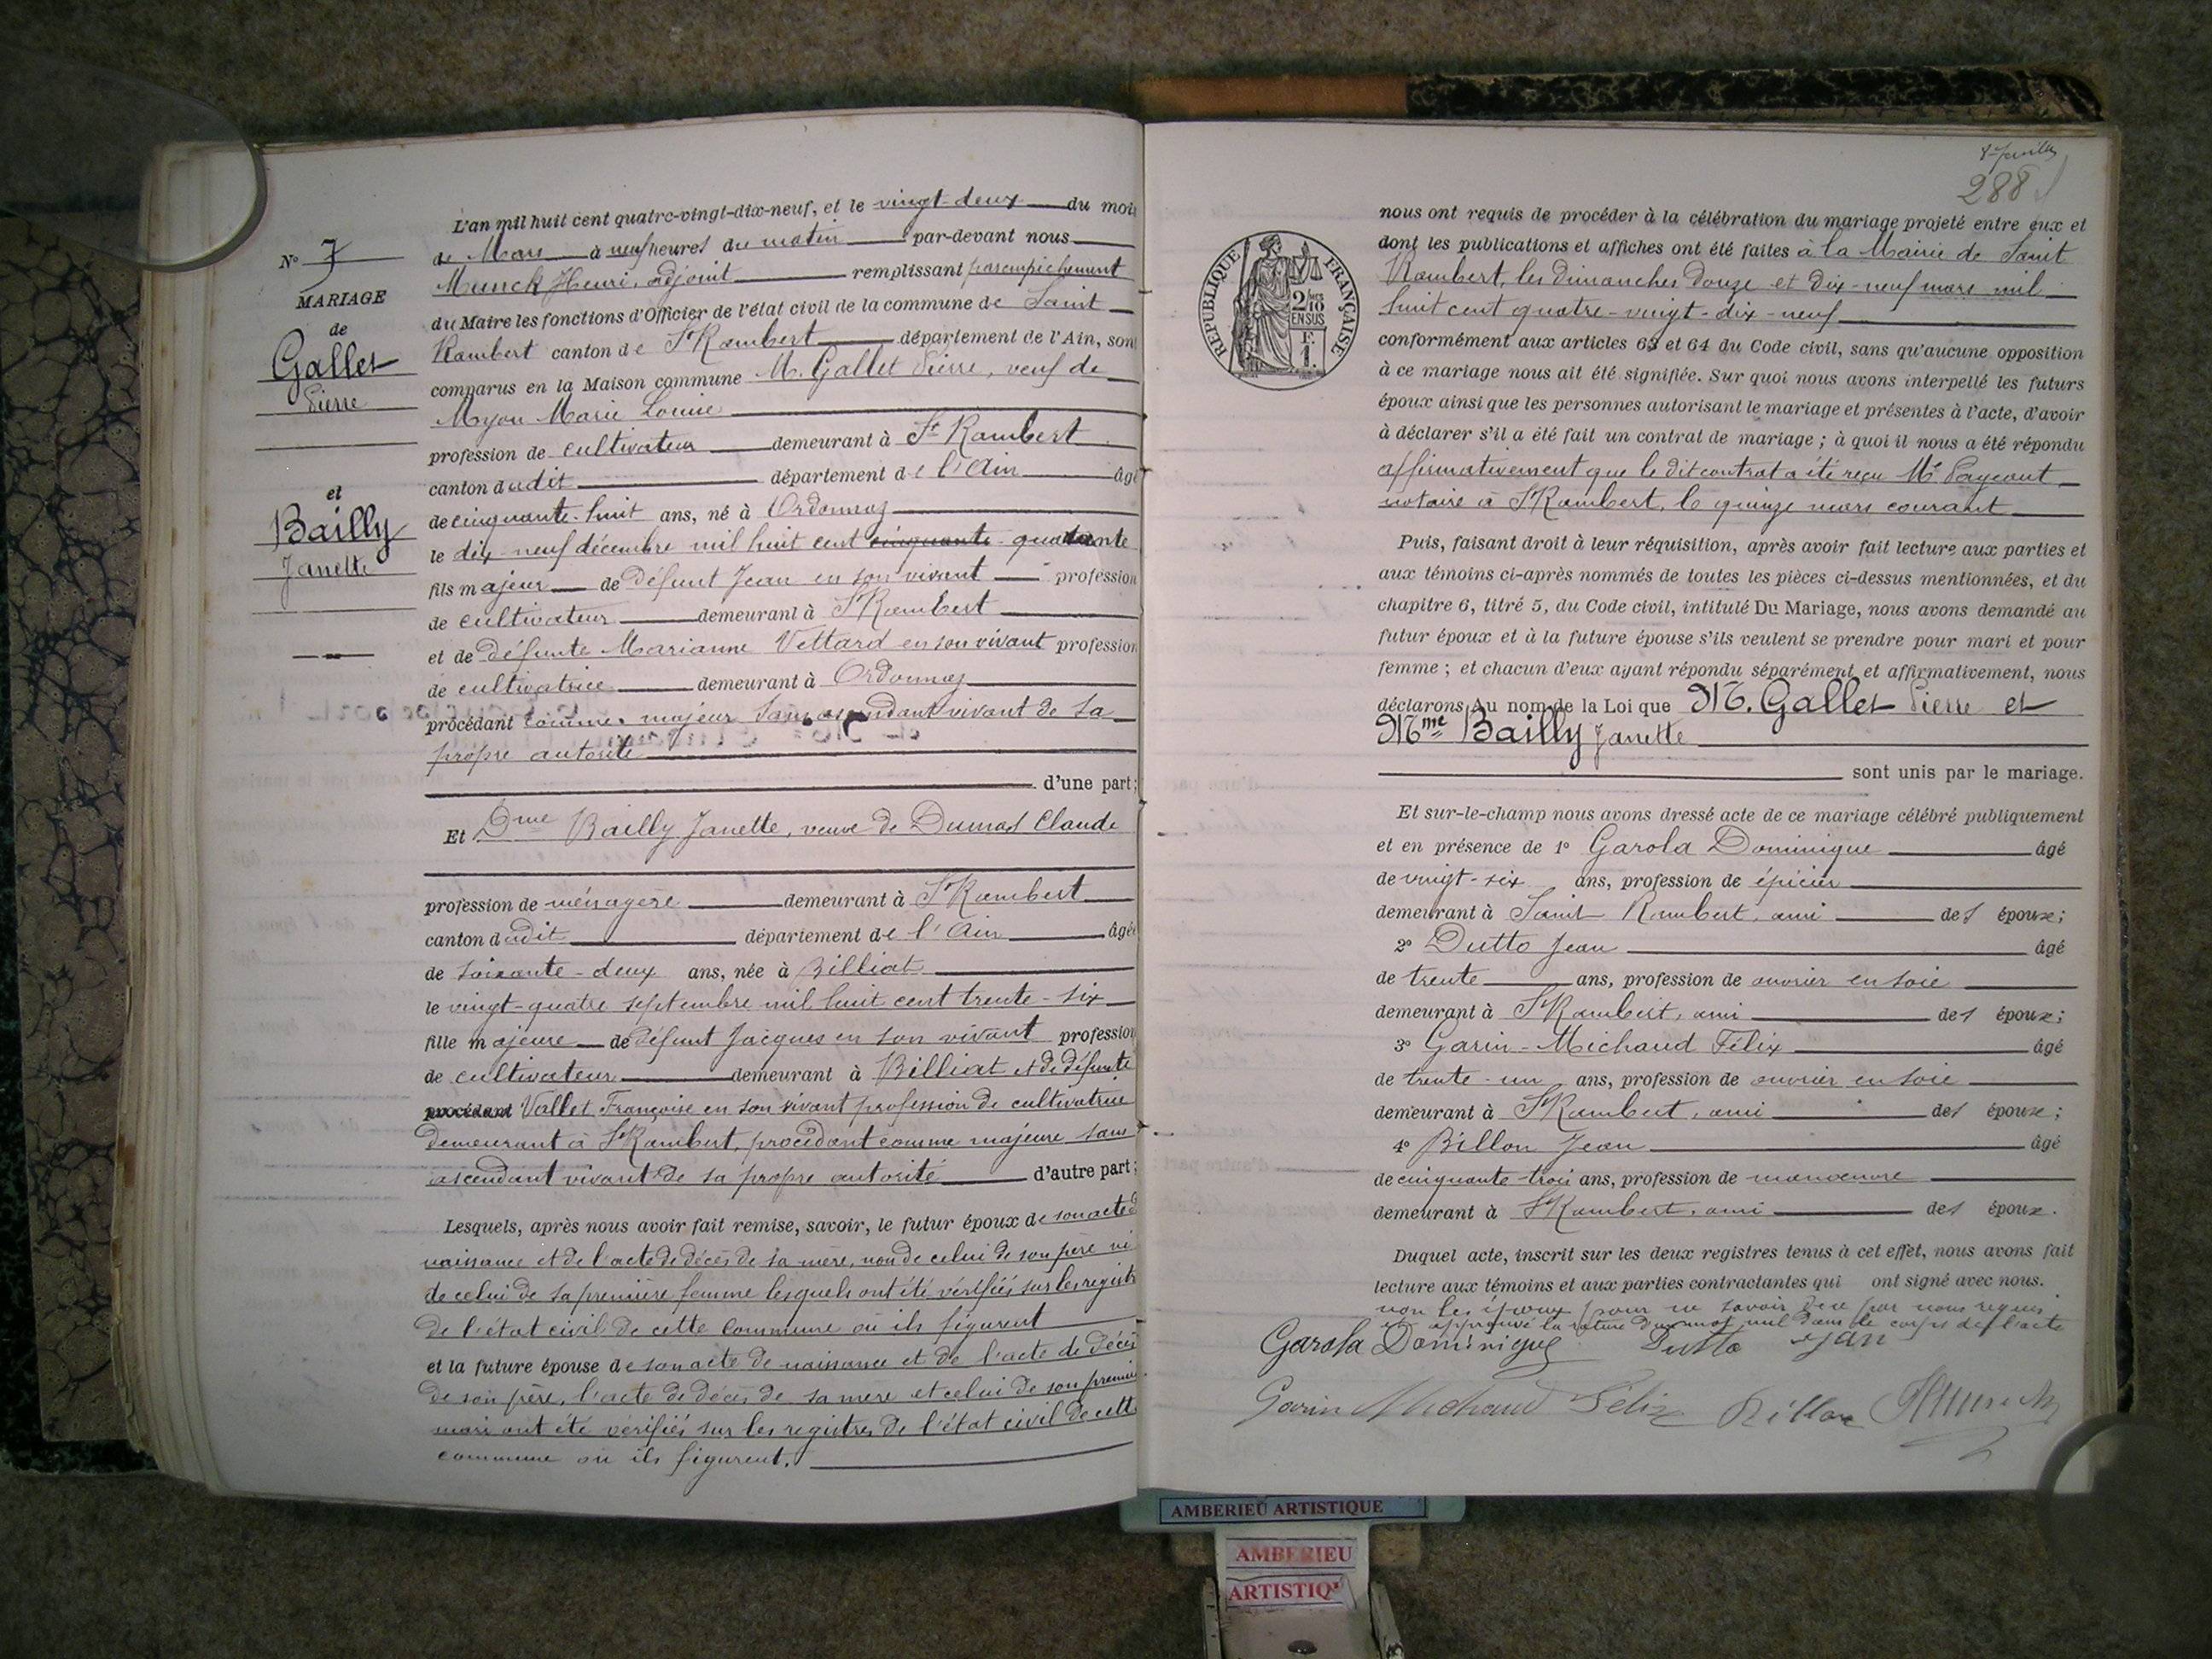 N° 7
MARIAGE
de
Gallet
Pierre
et
Bailly
Janette
L'an mil huit cent quatre-vingt-dix-neuf, et le vingt-deux du mois
de Mars à neuf heures du matin par-devant nous
Munck Henri, adjoint remplissant par empêchement
du Maire les fonctions d'Officier de l'état civil de la commune de Saint
Rambert canton de St Rambert département de l'Ain, sont
comparus en la Maison commune M. Gallet Pierre, veuf de
Myon Marie Louise
profession de cultivateur demeurant à St Rambert
canton dudit département de l'Ain âgé
de cinquante-huit ans, né à Ordonnaz
le dix-neuf décembre mil huit cent cinquante quarante
fils majeur de défunt Jean en son vivant profession
de cultivateur demeurant à St Rambert
et de défunte Marianne Vettard en son vivant profession
de cultivatrice demeurant à Ordonnaz
procédant comme majeur sans ascendant vivant de sa
propre autorité
d'une part;
Et Dme Bailly Janette, veuve de Dumas Claude
profession de ménagère demeurant à St Rambert
canton dudit département de l'Ain âgée
de soixante-deux ans, née à Billiat
le vingt-quatre septembre mil huit cent trente-six
fille majeure de défunt Jacques en son vivant profession
de cultivateur demeurant à Billiat et de défunte
procédant Vallet Françoise en son vivant profession de cultivatrice
demeurant à St Rambert, procédant comme majeure sans
ascendant vivant de sa propre autorité d'autre part;
Lesquels, après nous avoir fait remise, savoir, le futur époux de son acte de
naissance et de l'acte de décès de sa mère, non de celui de son père ni
de celui de sa première femme lesquels ont été vérifiés sur les registres
de l'état civil de cette commune où ils figurent
et la future épouse de son acte de naissance et de l'acte de décès
de son père, l'acte de décès de sa mère et celui de son premier
mari ont été vérifiés sur les registres de l'état civil de cette
commune où ils figurent.
288
RÉPUBLIQUE FRANÇAISE
2/10
EN SUS
F.
1.
nous ont requis de procéder à la célébration du mariage projeté entre eux et
dont les publications et affiches ont été faites à la Mairie de Saint
Rambert, les dimanches douze et dix-neuf mars mil
huit cent quatre-vingt-dix-neuf
conformément aux articles 63 et 64 du Code civil, sans qu'aucune opposition
à ce mariage nous ait été signifiée. Sur quoi nous avons interpellé les futurs
époux ainsi que les personnes autorisant le mariage et présentes à l'acte, d'avoir
à déclarer s'il a été fait un contrat de mariage; à quoi il nous a été répondu
affirmativement que le dit contrat a été reçu Me Pageaut
notaire à St Rambert, le quinze mars courant
Puis, faisant droit à leur réquisition, après avoir fait lecture aux parties et
aux témoins ci-après nommés de toutes les pièces ci-dessus mentionnées, et du
chapitre 6, titre 5, du Code civil, intitulé Du Mariage, nous avons demandé au
futur époux et à la future épouse s'ils veulent se prendre pour mari et pour
femme; et chacun d'eux ayant répondu séparément et affirmativement, nous
déclarons Au nom de la Loi que M. Gallet Pierre et
Mme Bailly Janette
sont unis par le mariage.
Et sur-le-champ nous avons dressé acte de ce mariage célébré publiquement
et en présence de 1° Garola Dominique âgé
de vingt-six ans, profession de épicier
demeurant à Saint Rambert, ami des époux;
2° Dutto Jean âgé
de trente ans, profession de ouvrier en soie
demeurant à St Rambert, ami des époux;
3° Garin-Michaud Félix âgé
de trente-un ans, profession de ouvrier en soie
demeurant à St Rambert, ami des époux;
4° Billon Jean âgé
de cinquante-trois ans, profession de manoeuvre
demeurant à St Rambert, ami des époux.
Duquel acte, inscrit sur les deux registres tenus à cet effet, nous avons fait
lecture aux témoins et aux parties contractantes qui ont signé avec nous.
non les époux pour ne savoir de ce par nous requis
et approuvé la rature d'un mot nul dans le corps de l'acte
Garola Dominique Dutto Jan
Garin Michaud Félix Billon HMunck
AMBERIEU ARTISTIQUE
AMBERIEU
ARTISTIQ